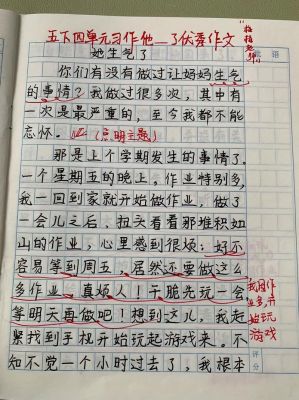 五下四单元习作他__了优秀作文
她生气了
你们有没有做过让妈妈生气
的事情?我做过很多次,其中有
一次是最严重的,至今我都不能
忘怀。(点明主题)
那是上个学期发生的事情了。
一个星期五的晚上,作业特别多,
我一回到家就开始做作业,做了
一会儿之后,抬头看看那堆积如
山的作业,心里感到很烦:好不
容易等到周五,居然还要做这么
多作业,真烦人!干脆先玩一会
等明天再做吧!想到这儿,我赶
紧找到手机开始玩起游戏来。不
知不觉一个小时过去了,我根本
我因作
业多,开
始玩
游戏
评
分